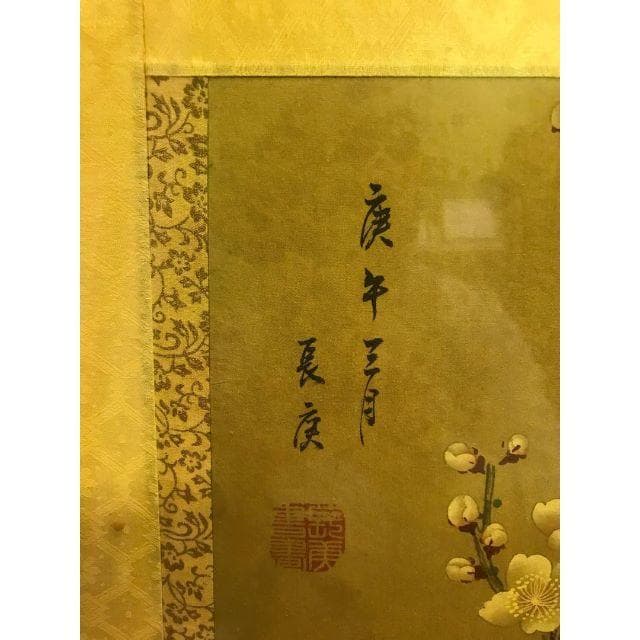 庚午三月
長庚